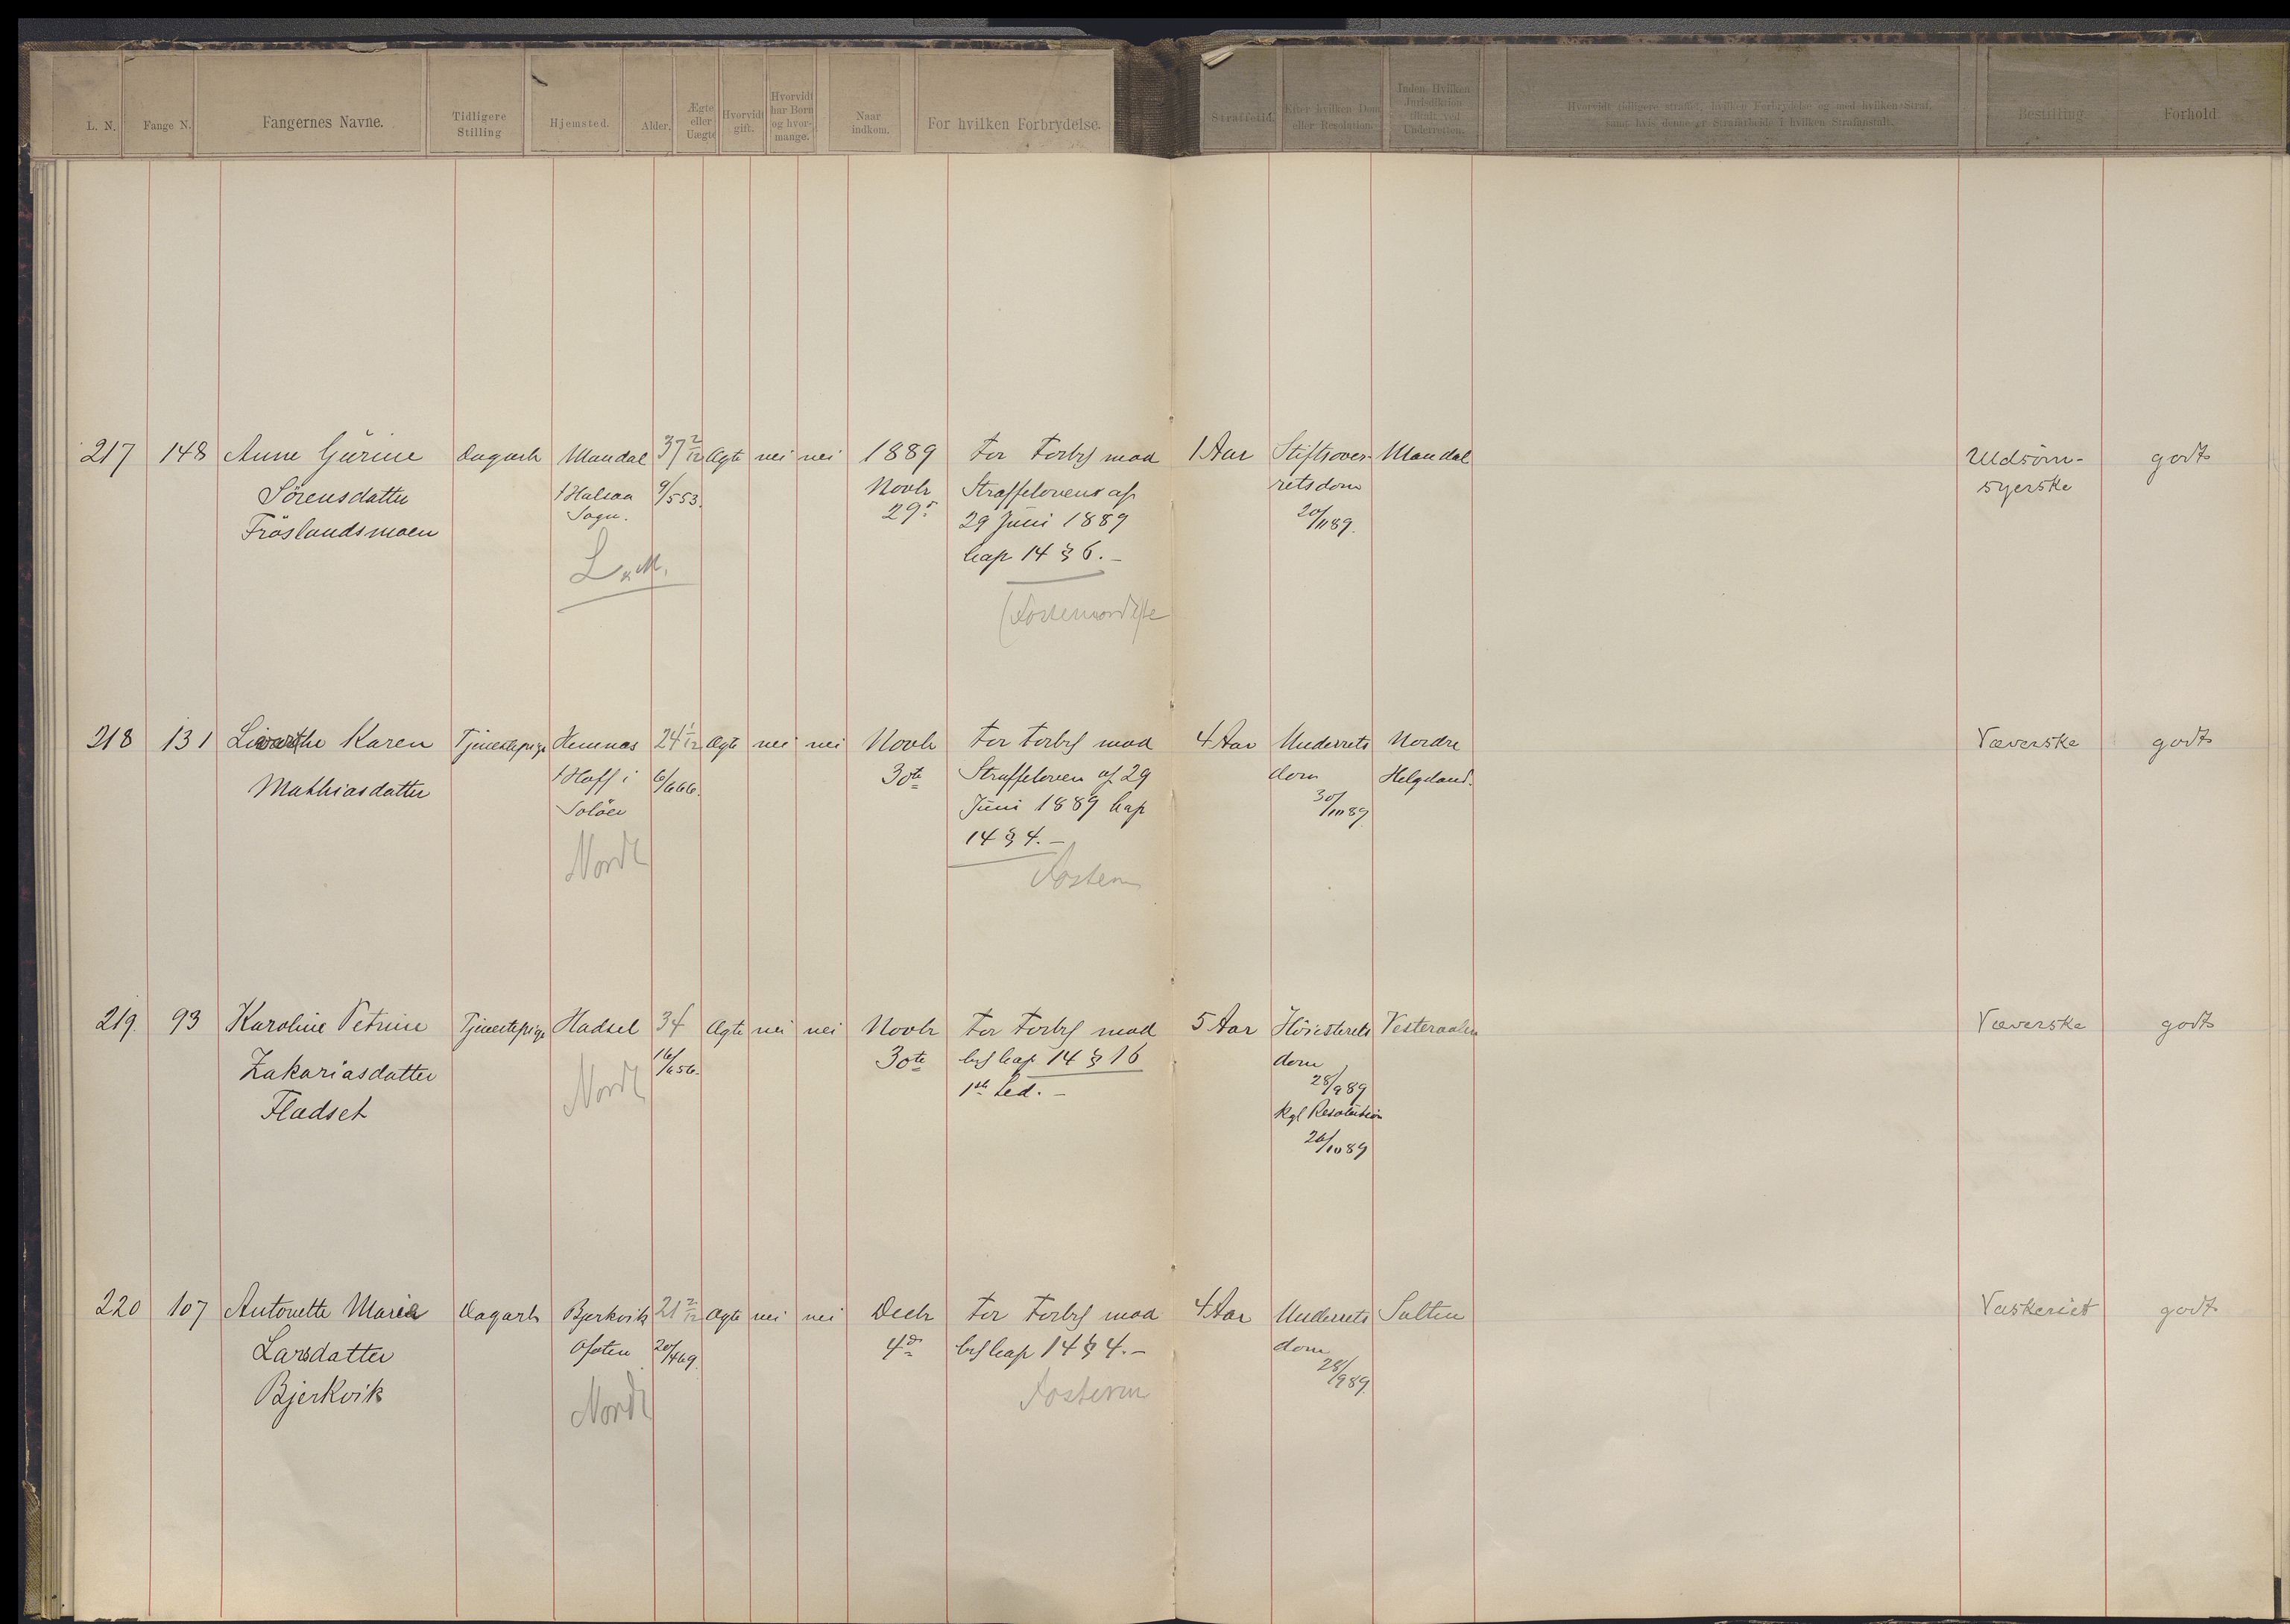 L. N. Fange N. Fangernes Navne. Tidligere Stilling Hjemsted. Alder. Ægte eller Uægte Hvorvidt gift. Hvorvidt har Børn og hvormange. Naar indkom. For hvilken Forbrydelse. Straffetid. Efter hvilken Dom eller Resolution. Inden Hvilken Jurisdiktion tiltalt ved Underretten. Hvorvidt tidligere straffet, hvilken Forbrydelse og med hvilken Straf, samt hvis denne er Strafarbeide i hvilken Strafanstalt. Bestilling Forhold
217 148 Anne Gürine Dagarb Mandal 37 2/12 Ægte nei nei 1889 for Forbr mod 1 Aar Stiftsover- Mandal Udsöm- godt
Sörensdatter /Halsaa 9/553. Novbr Straffelovens af retsdom syerske
Fröslandsmoen Sogn. 29 29 Juni 1889 20/1189.
L. M. kap 14 § 6. –
218 131 Karen Tjenestepige Hemnæs 24 1/12 Ægte nei nei Novbr for Forbr mod 4 Aar Underrets Nordre Væverske godt
Mathiasdatter /Hoff i 6/666. 30te Straffeloven af 29 dom Helgeland.
Solöer Juni 1889 kap 30/1089
Nordl 14 § 4. –
Fosterm
219 93 Karoline Petrine Tjenestepige Hadsel 34 Ægte nei nei Novbr for Forbr mod 5 Aar Höiesterets Vesteraalen Væverske godt
Zakariasdatter 16/656. 30te kap 14 § 16 dom
Fladset Nordl 1ste Led. – 28/989
kgl Resolution
26/1089
220 107 Antonette Maria Dagarb Bjerkvik 21 2/12 Ægte nei nei Decbr for Forbr mod 4 Aar Underrets Salten Vaskeriet godt
Larsdatter Ofoten 20/469. 4de kap 14 § 4. – dom
Bjerkvik Nordl Fosterm 28/989